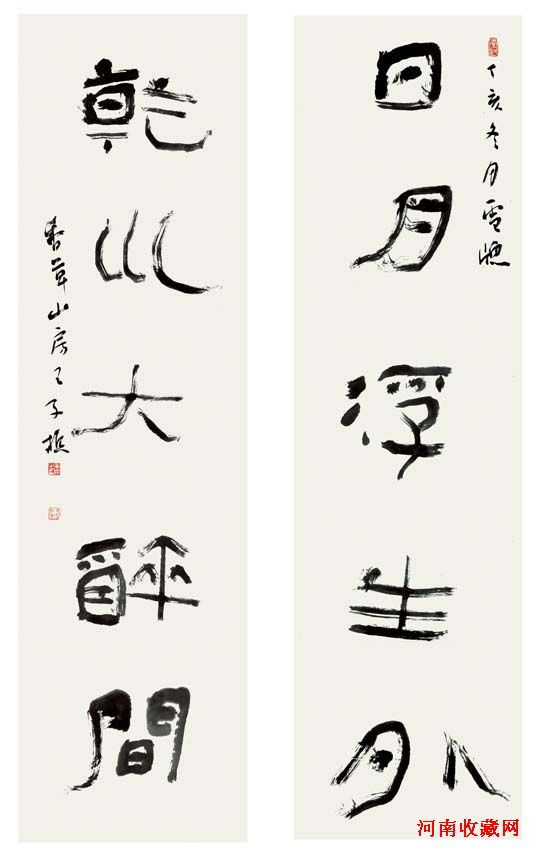 丁亥冬月雪牕
日月浮生外
乾巛大醉間
香草山房王子樵
河南收藏网